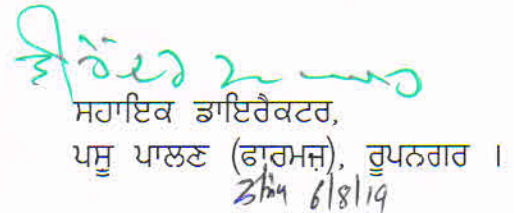 ਸਹਾਇਕ ਡਾਇਰੈਕਟਰ,
ਪਸ਼ੂ ਪਾਲਣ (ਫਾਰਮਜ਼), ਰੂਪਨਗਰ ।
6/8/19